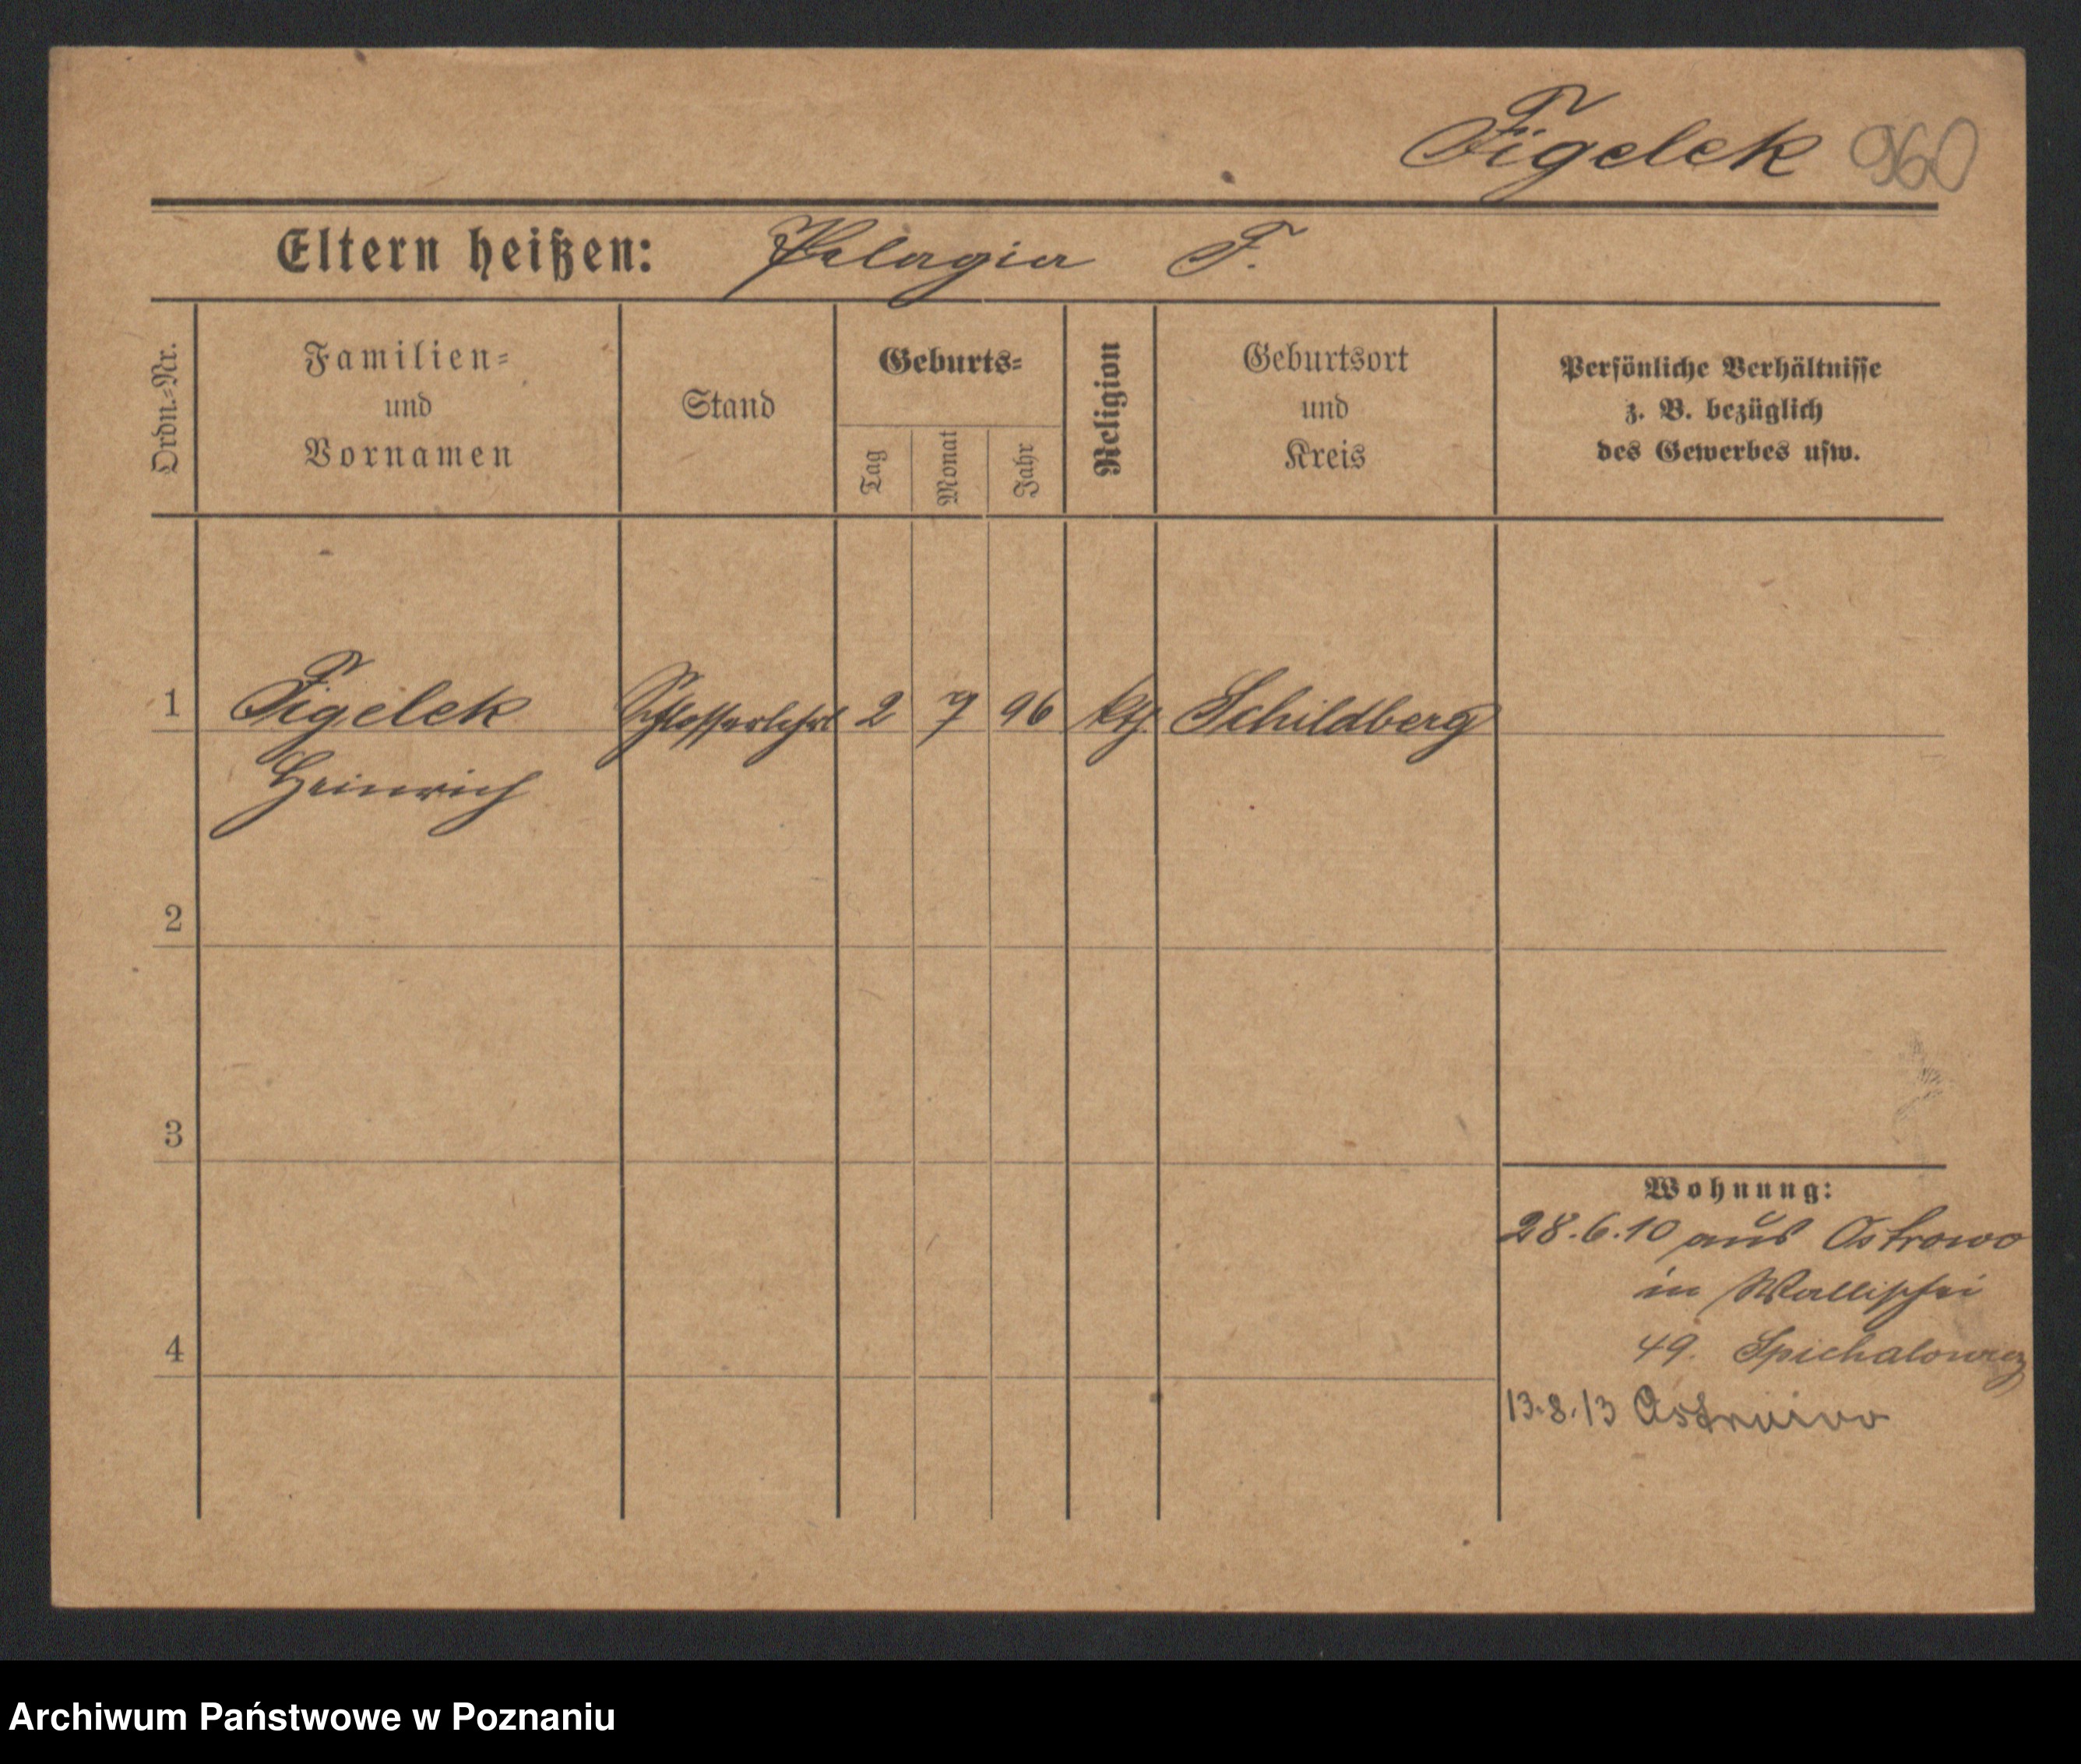 Figelek 960
Eltern heißen: Pelagia F.
Ordn.-Nr.
Familien-
und
Vornamen
Stand
Geburts-
Tag
Monat
Jahr
Religion
Geburtsort
und
Kreis
Persönliche Verhältnisse
z. B. bezüglich
des Gewerbes usw.
1 Figelek Schlosserlehrl 2 7 96 kth. Schildberg
Heinrich
2
3
4
Wohnung:
28.6.10 aus Ostrowo
in Wallischei
49. Spichalowicz
13.8.13 Ostrowo
Archiwum Państwowe w Poznaniu